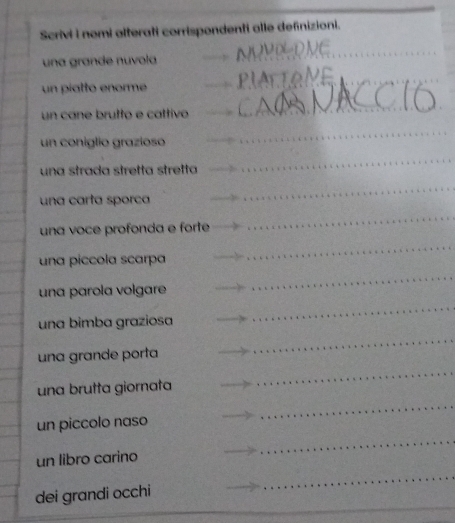 Scrivi i nomi alterati corrispondenti alle definizioni.
una grande nuvola NUVOLONE
un piatto enorme PIATTONE
un cane brutto e cattivo CAGNACCIO
un coniglio grazioso
una strada stretta stretta
una carta sporca
una voce profonda e forte
una piccola scarpa
una parola volgare
una bimba graziosa
una grande porta
una brutta giornata
un piccolo naso
un libro carino
dei grandi occhi